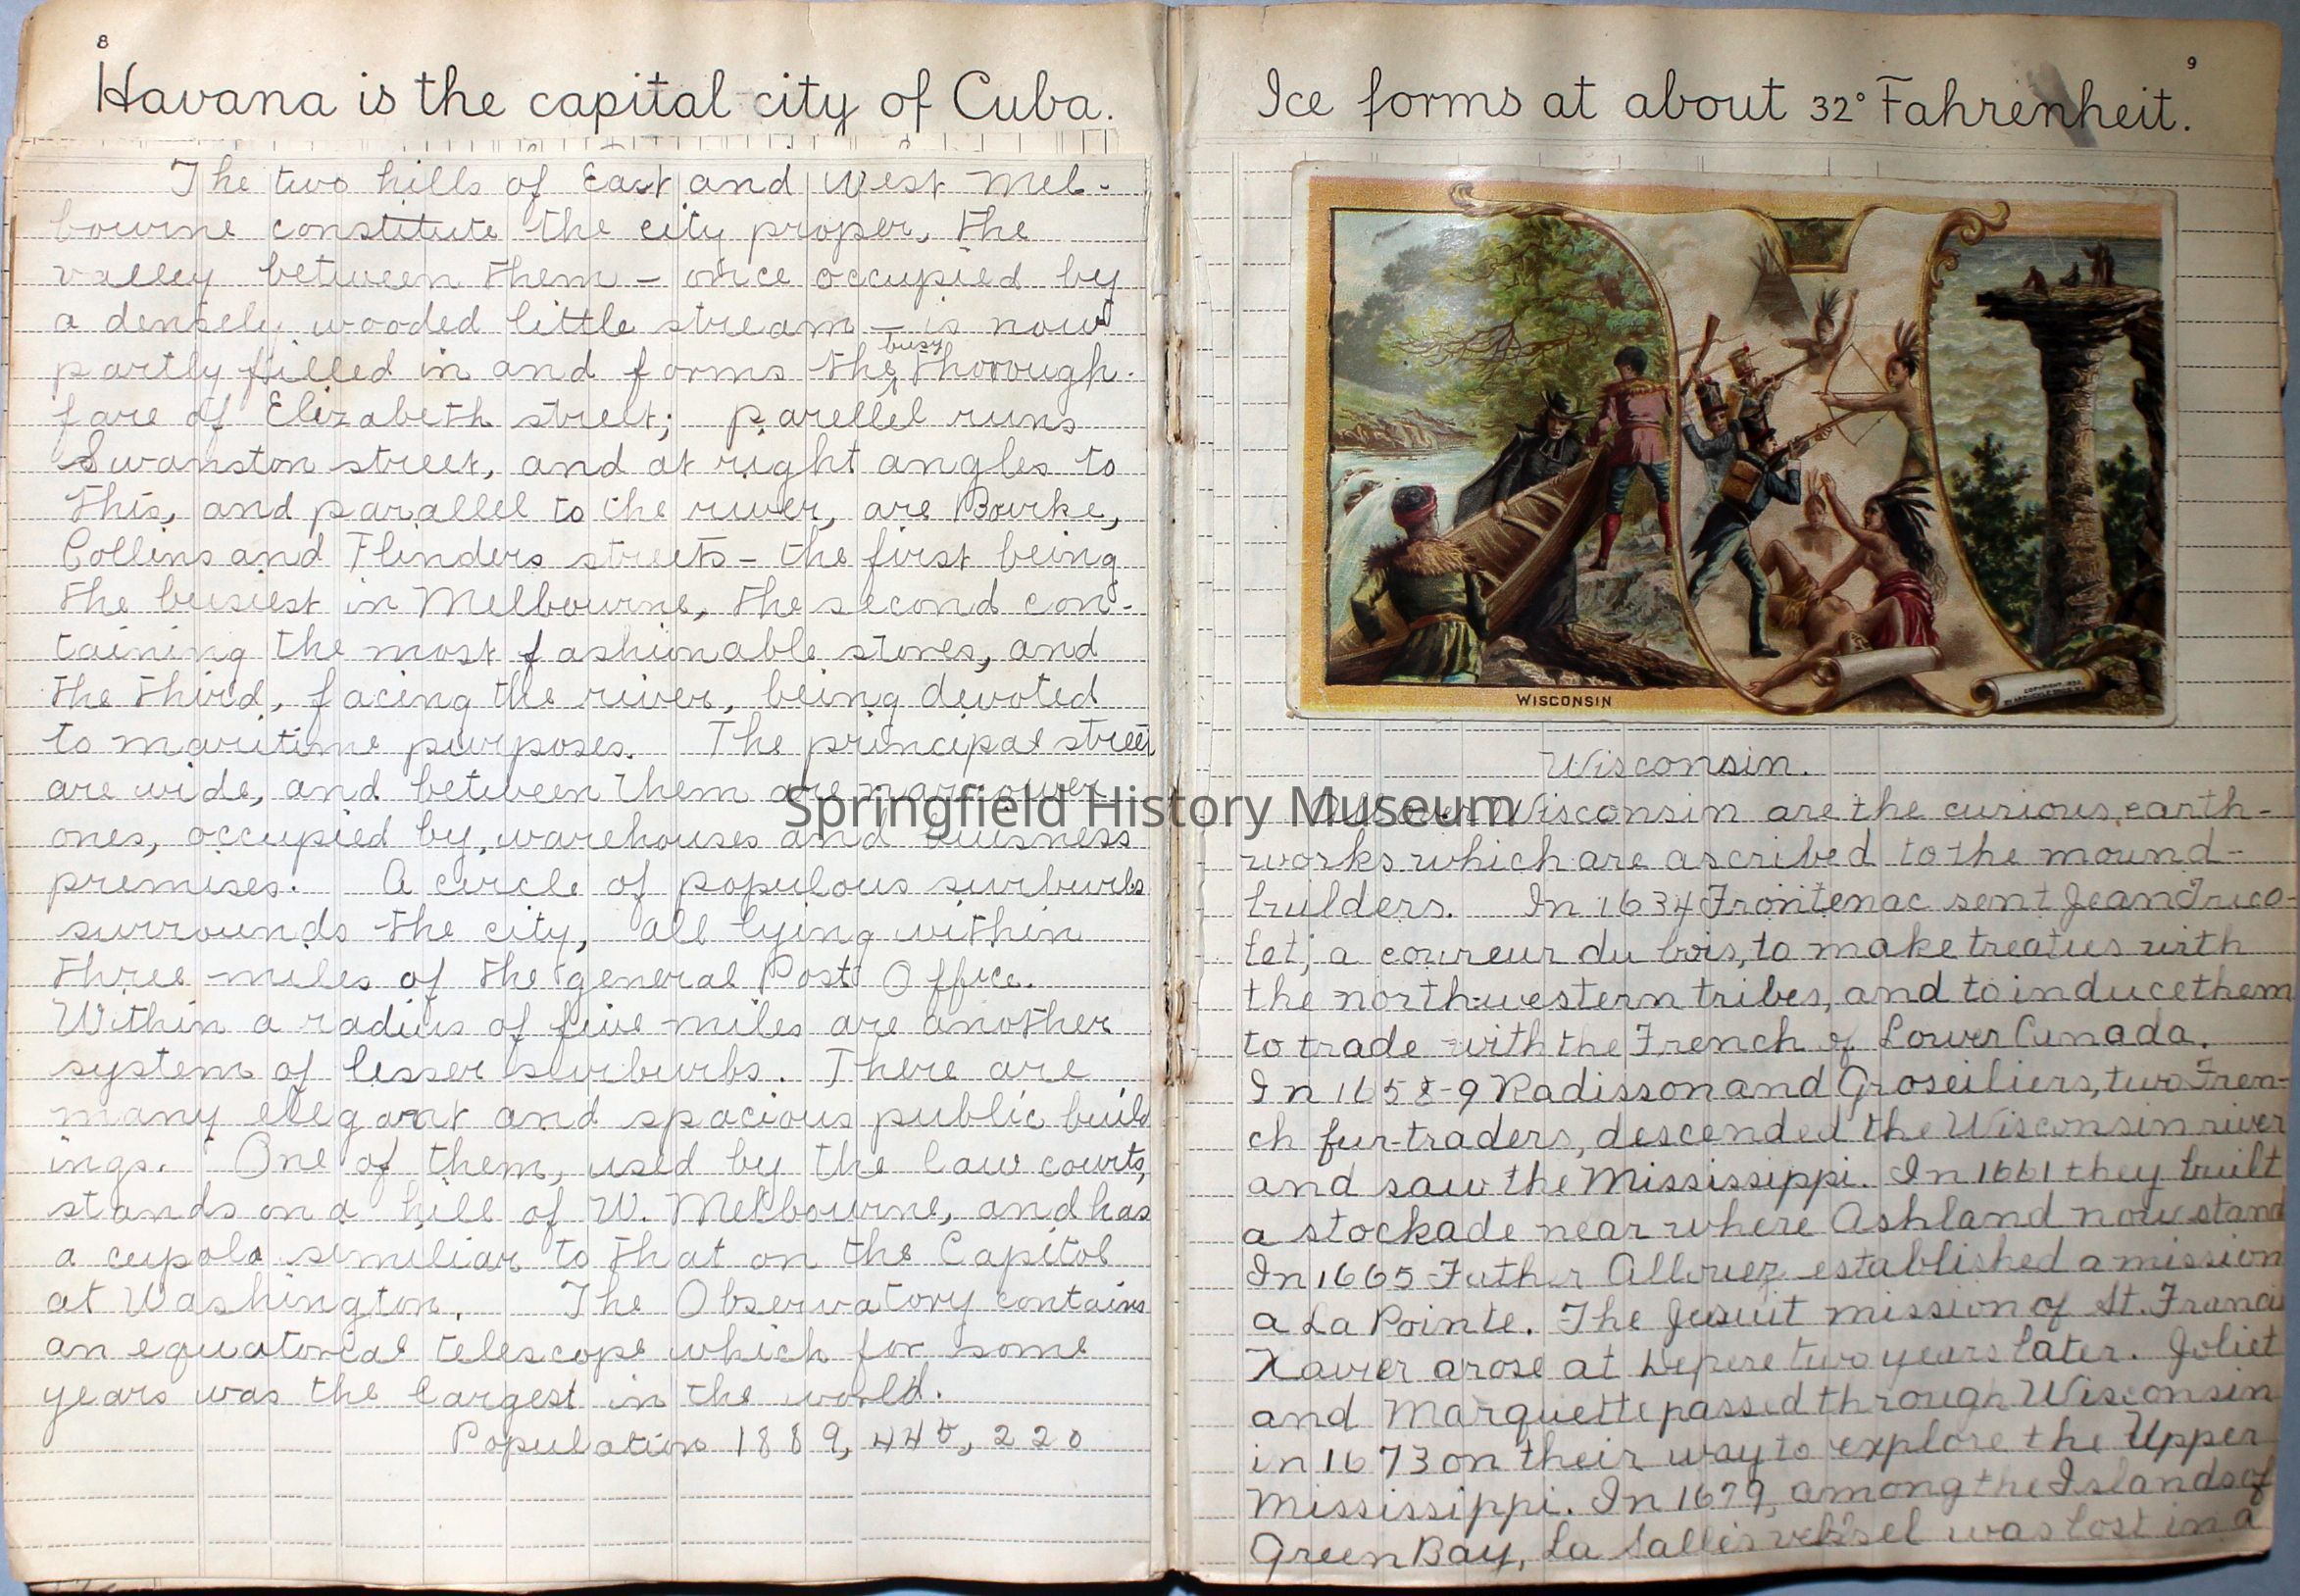 8
Havana is the capital city of Cuba.
The two hills of East and West Mel-
bourne constitute the city proper, the
valley between them - once occupied by
a densely wooded little stream - is now
partly filled in and forms the busy thorough-
fare of Elizabeth street; parellel runs
Swanston street, and at right angles to
this, and parallel to the river, are Bourke,
Collins and Flinders streets - the first being
the busiest in Melbourne, the second con-
taining the most fashionable stores, and
the third, facing the river, being devoted
to maritime purposes. The principal street
are wide, and between them are narrower
ones, occupied by warehouses and buisness
premises. A circle of populous surburbs
surrounds the city, all lying within
three miles of the general Post Office.
Within a radius of five miles are another
system of lesser surburbs. There are
many elegant and spacious public build
ings. One of them, used by the law courts,
stands on a hill of W. Melbourne, and has
a cupola similiar to that on the Capitol
at Washington. The Observatory contains
an equatorial telescope which for some
years was the largest in the world.
Population 1889, 445, 220
9
Ice forms at about 32° Fahrenheit.
WISCONSIN
Wisconsin.
All over Wisconsin are the curious earth-
works which are ascribed to the mound-
builders. In 1634 Frontenac sent Jean Trico-
let, a coureur du bois, to make treaties with
the north-western tribes, and to induce them
to trade with the French of Lower Canada.
In 1658-9 Radisson and Groseiliers, two Fren-
ch fur-traders, descended the Wisconsin river
and saw the Mississippi. In 1661 they built
a stockade near where Ashland now stand
In 1665 Father Allouez established a mission
a La Pointe. The Jesuit mission of St. Franci
Xavier arose at Depere two years later. Joliet
and Marquette passed through Wisconsin
in 1673 on their way to explore the Upper
Mississippi. In 1679, among the Islands of
Green Bay, La Salle's vessel was lost in a
Springfield History Museum